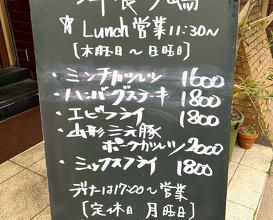 ☆ Lunch 営業 11:30〜
[木曜日〜日曜日]
・ミンチカツレツ 1600
・ハンバーグステーキ 1800
・エビフライ 1800
・山形三元豚
ポークカツレツ 2000
・ミックスフライ 1800
ディナーは17:00〜営業
[定休日 月曜日]